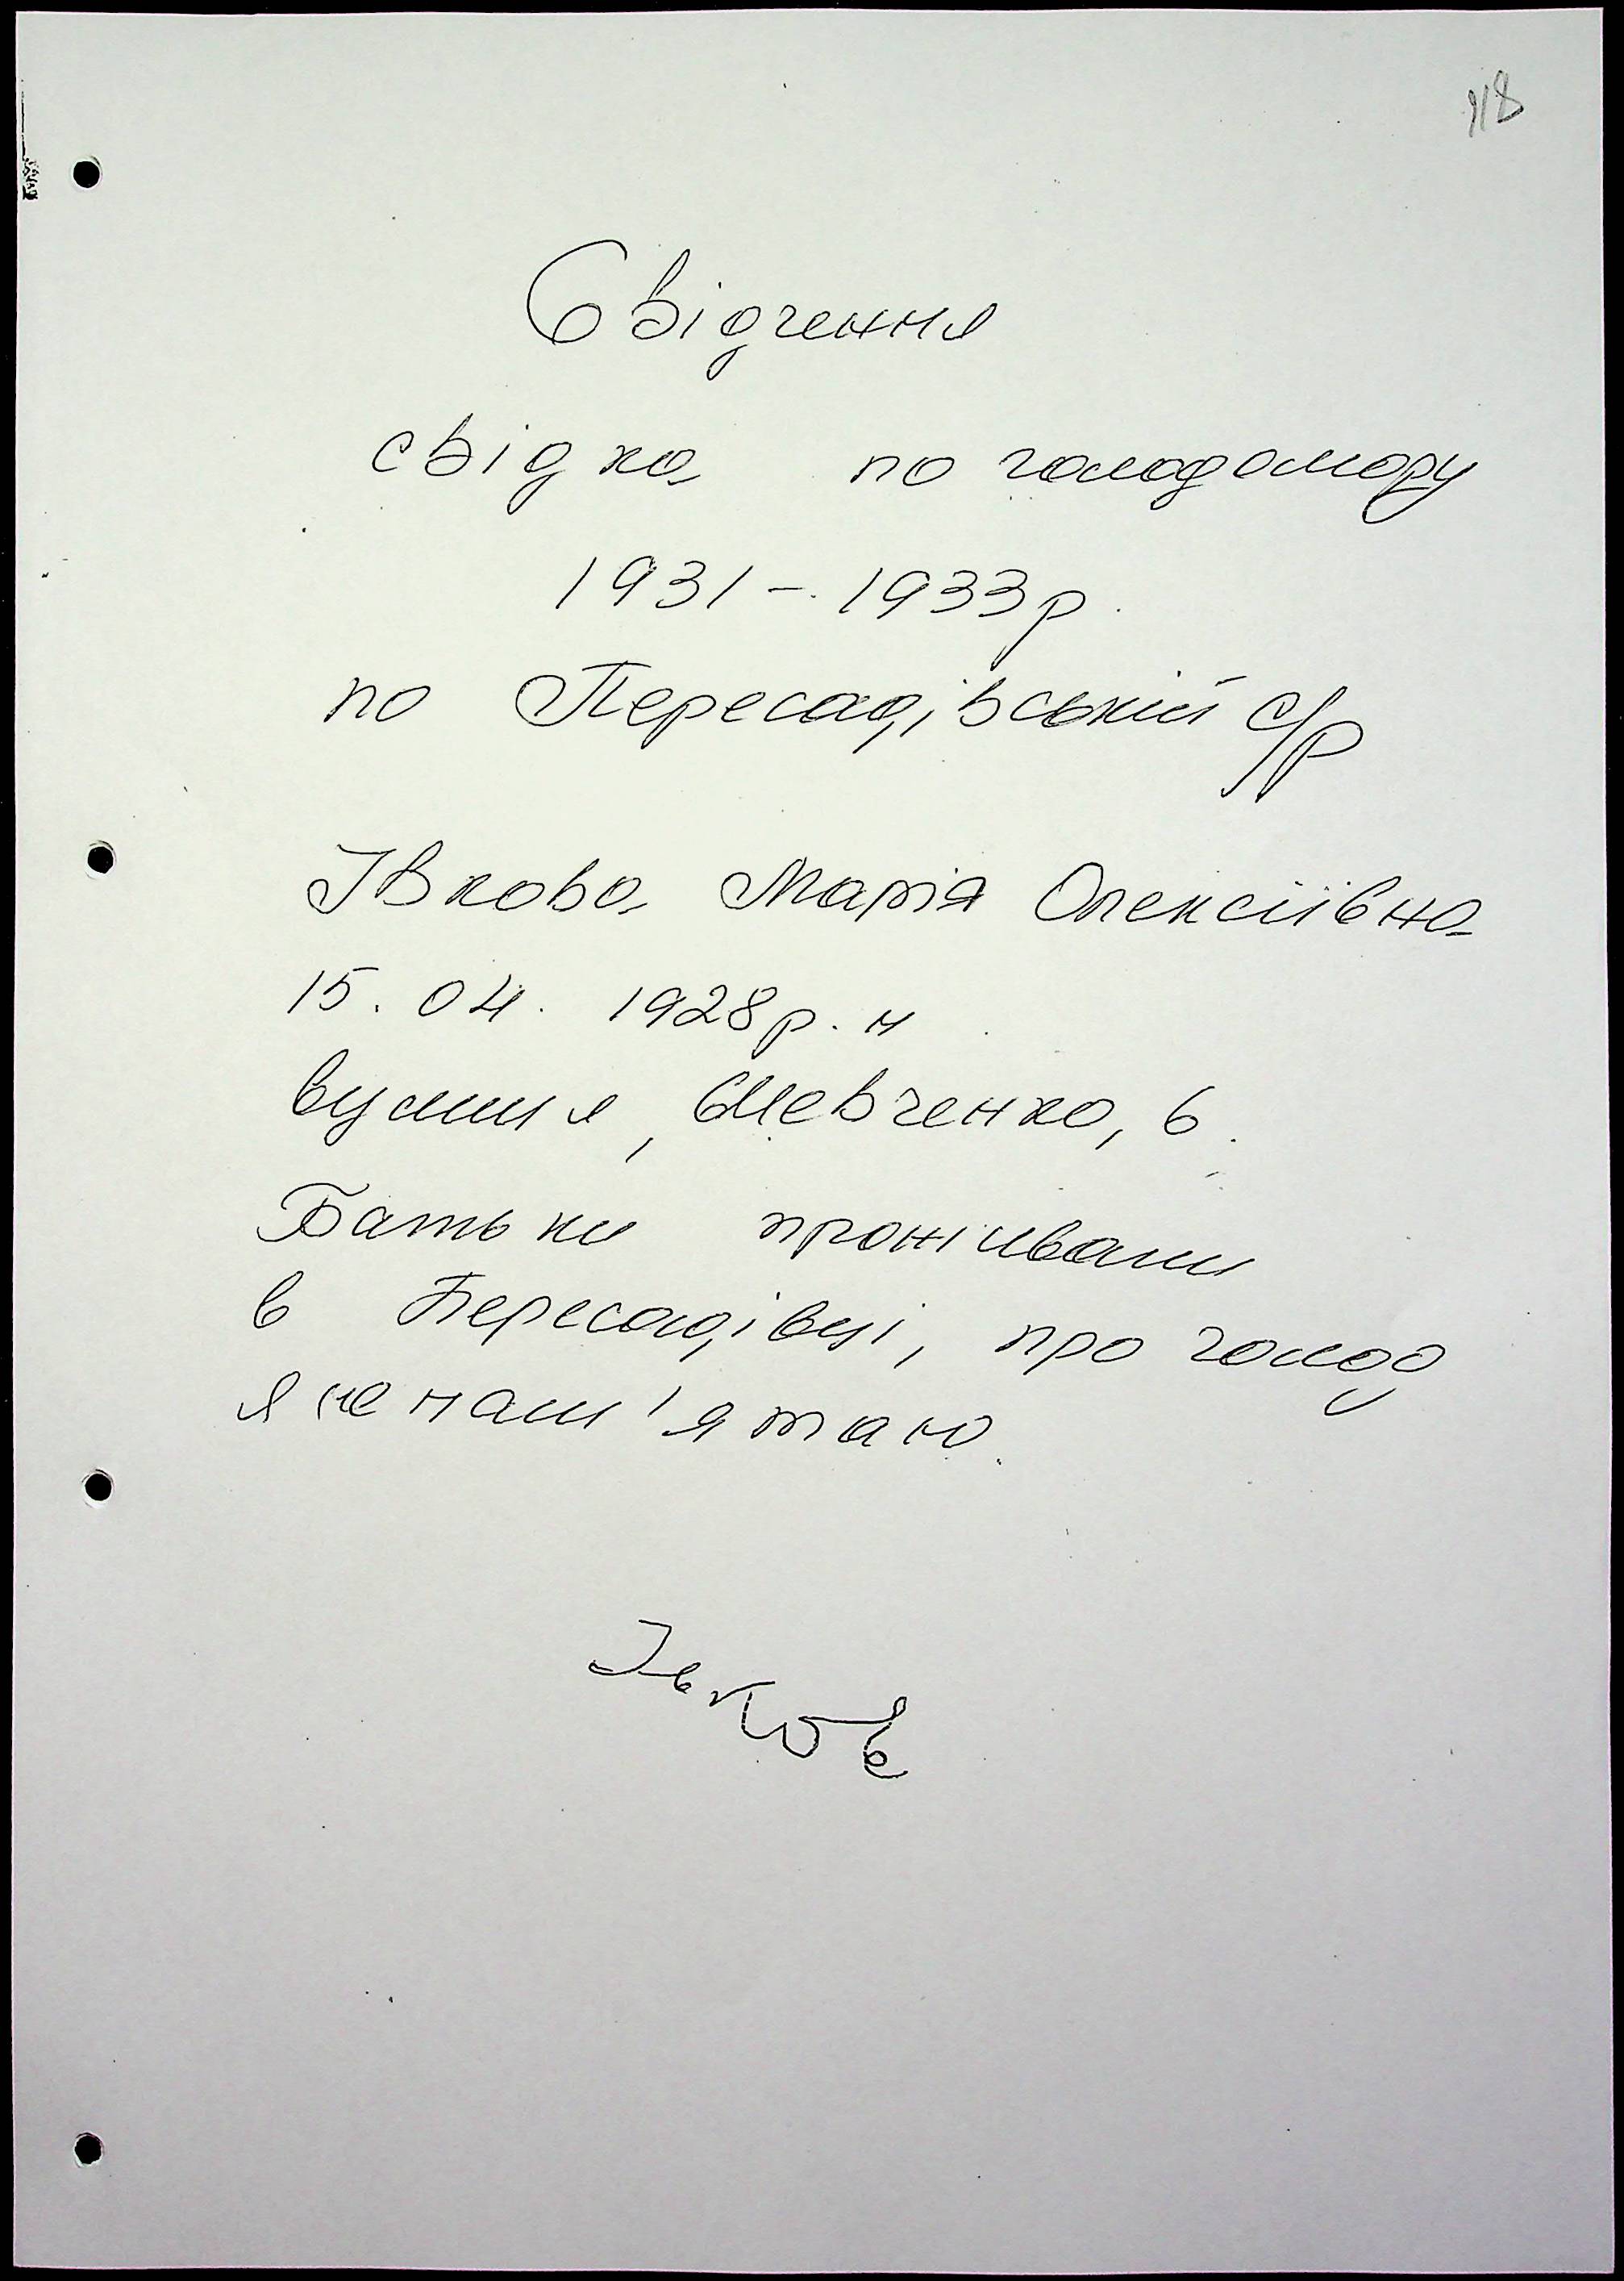 118
Свідчення
свідка по голодомору
1931 - 1933р.
по Пересадівській с/р
Івкова Марія Олексіївна
15. 04. 1928р. н
вулиця, Шевченко, 6.
Батьки проживали
в Пересадівці, про голод
я не пам'ятаю.
Івков